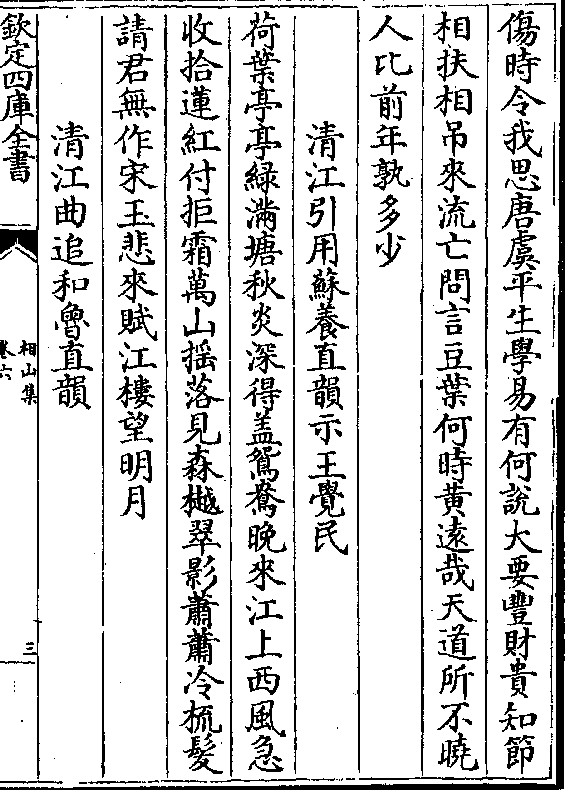 傷時令我思唐虞平生學易有何說大要豐財貴知節
相扶相吊來流亡問言豆葉何時黃遠哉天道所不曉
人比前年孰多少
清江引用蘇養直韻示王覺民
荷葉亭亭綠滿塘秋炎深得蓋鴛鴦晚來江上西風急
收拾蓮紅付拒霜萬山揺落見森樾翠影蕭蕭冷梳髮
請君無作宋玉悲來賦江樓望明月
清江曲追和魯直韻
欽定四庫全書
相山集
卷六
三